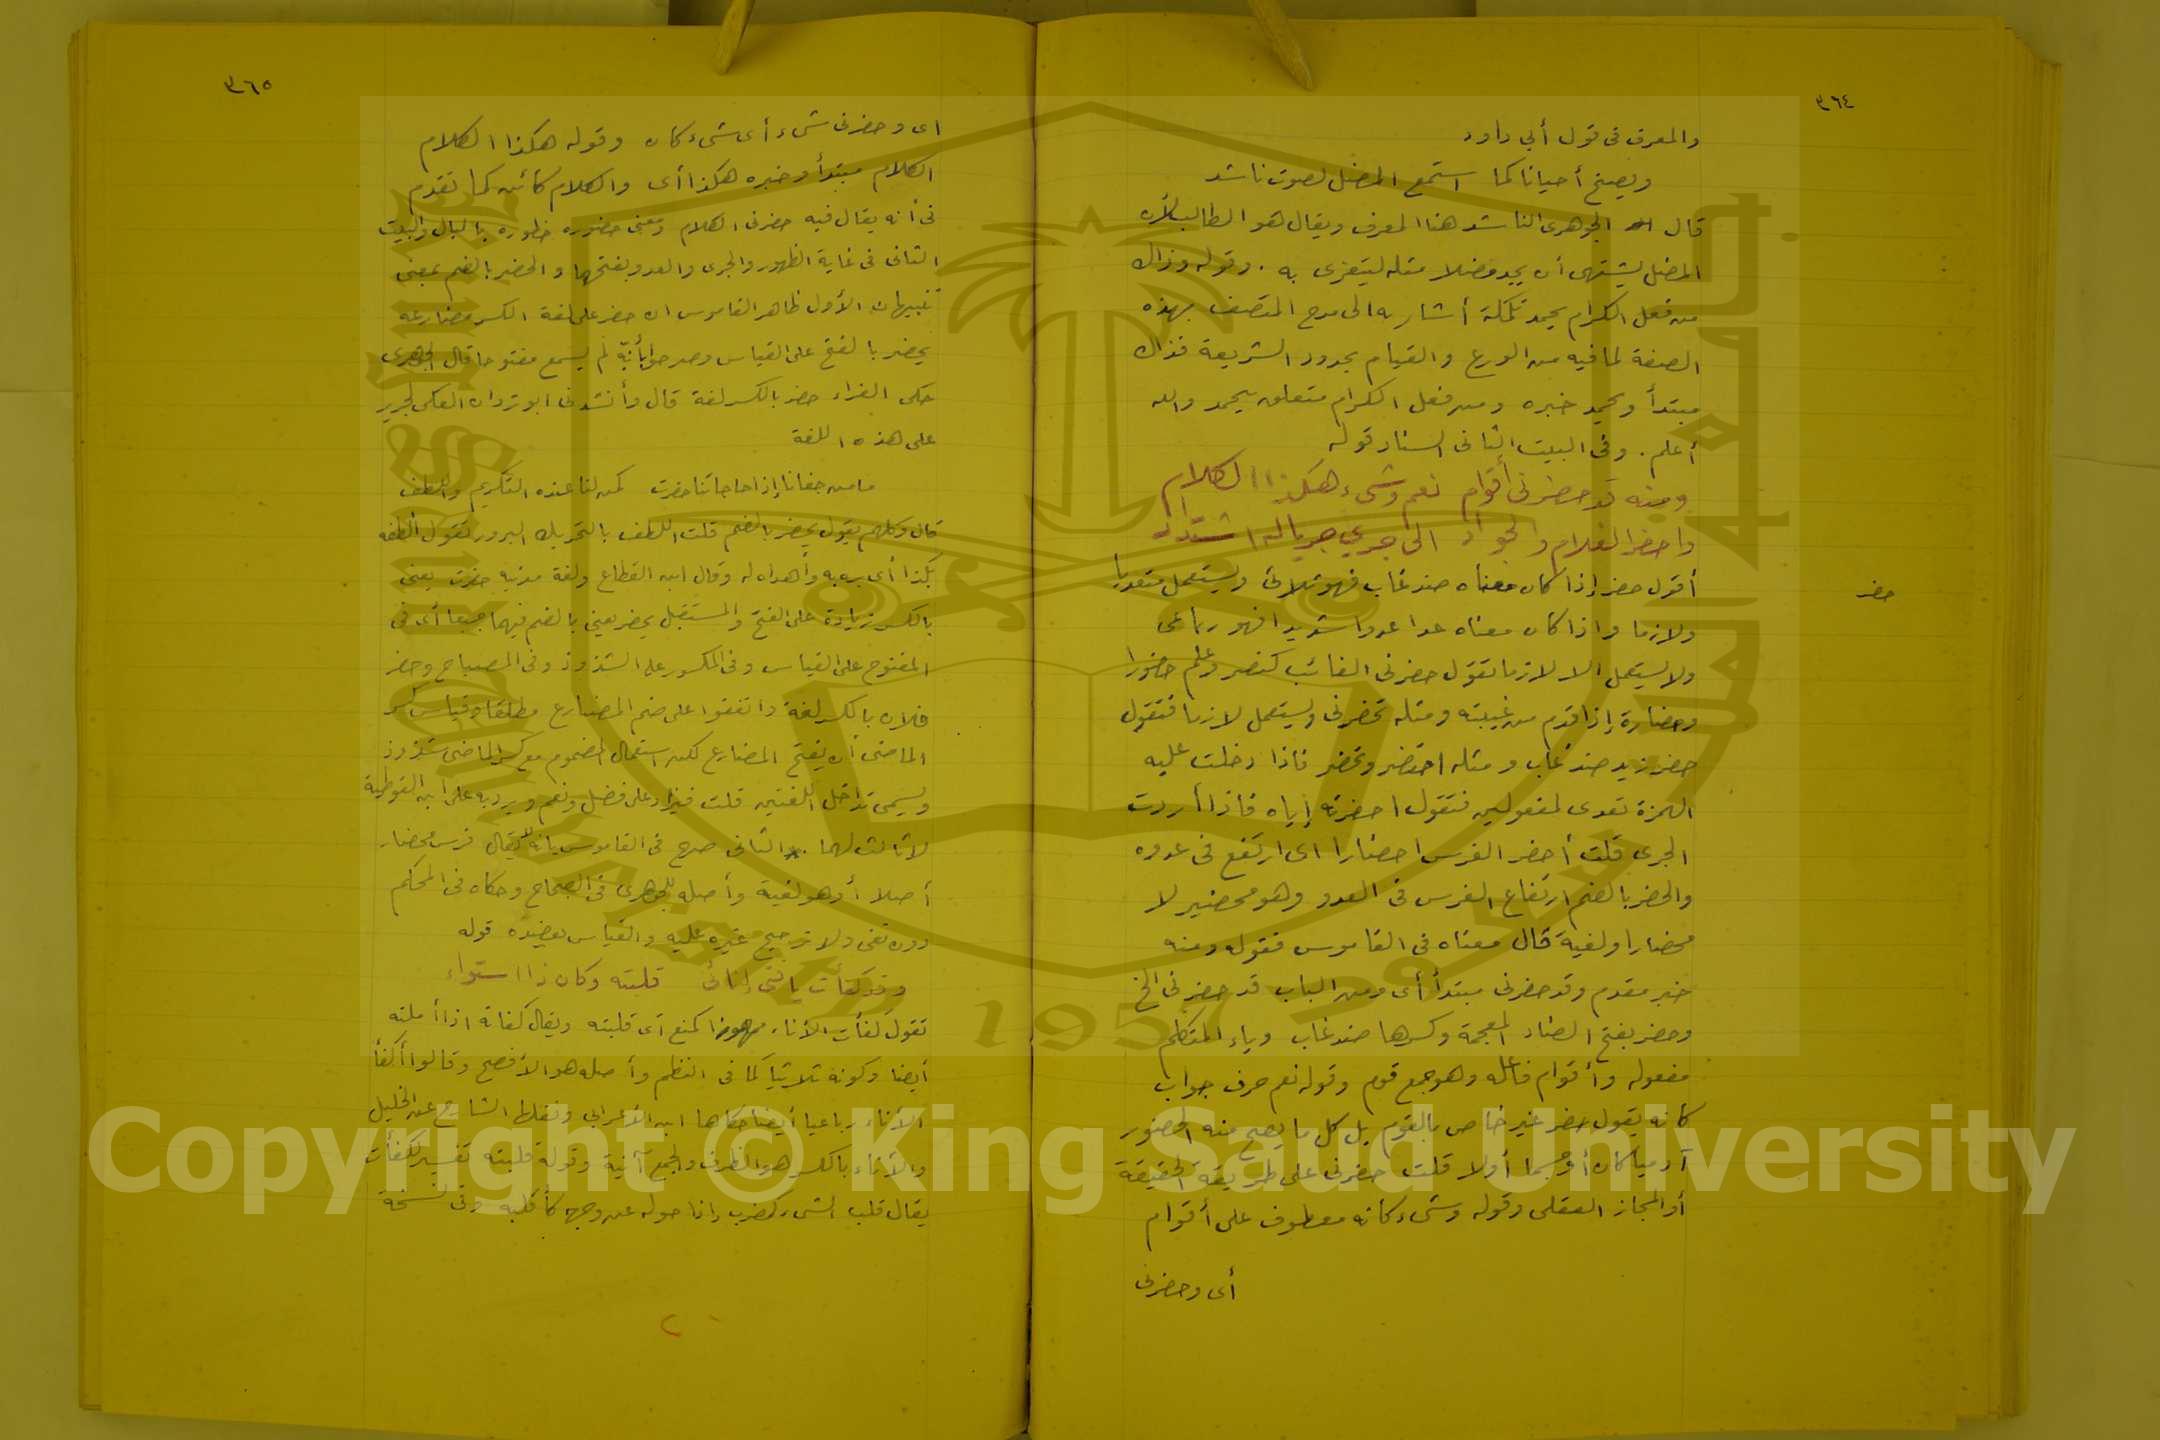 ٣٦٤
والمعرف فى قول أبي داود
ويصيخ أحيانا كما استمع المضل لصوت ناشد
قال الجوهرى الناشد هنا المعرف ويقال هو الطالب لأن
المضل يشتهى أن يجد مضلا مثله ليتعزى به . وقوله وذاك
من فعل الكرام يحمد تكملة أشار به الى مدح المتصف بهذه
الصفة لما فيه من الورع والقيام بحدود الشريعة فذاك
مبتدأ ويحمد خبره ومن فعل الكرام متعلق بيحمد والله
أعلم . وفى البيت الثانى السناد قوله
ومنه قد حضرنى أقوام نعم وشىء هكذا الكلام
واحضر الغلام والجواد الى جري جرياله اشتداد
حضر
أقول حضر إذا كان معناه ضد غاب فهو ثلاثى ويستعمل متعديا
ولازما واذا كان معناه عدا عدوا شديدا فهو رباعى
ولا يستعمل الا لازما تقول حضرنى الغائب كنصر وعلم حضورا
وحضارة إذا قدم من غيبته ومثله تحضرنى ويستعمل لازما فتقول
حضر زيد ضد غاب ومثله احتضر وتحضر فاذا دخلت عليه
الهمزة تعدى لمفعولين فتقول احضرته إياه فاذا أردت
الجرى قلت أحضر الفرس احضارا اى ارتفع فى عدوه
والحضر بالضم ارتفاع الفرس فى العدو وهو محضير لا
محضار او لغية قال معناه فى القاموس فقوله ومنه
خبر مقدم وقد حضرنى مبتدأ أى ومن الباب قد حضرنى الخ
وحضر بفتح الضاد المعجمة وكسرها ضد غاب وياء المتكلم
مفعوله وأقوام فاعله وهو جمع قوم وقوله نعم حرف جواب
كانه يقول حضر غير خاص بالقوم بل كل ما يصح منه الحضور
آدميا كان أو جسما أولا قلت حضرنى على طريقة الحقيقة
أو المجاز العقلى وقوله وشىء كانه معطوف على أقوام
أى وحضرنى
٣٦٥
اى وحضرنى شىء أى شىء كان وقوله هكذا الكلام
الكلام مبتدأ وخبره هكذا أى والكلام كائن كما تقدم
فى أنه يقال فيه حضرنى الكلام ومعنى حضوره خطوره بالبال والبيت
الثانى فى غاية الظهور والجرى والعدو بفتحها والحضر بالضم بمعنى
تنبيهان الأول ظاهر القاموس ان حضر على لغة الكسر مضارعه
يحضر بالفتح على القياس وصرحوا بأنه لم يسمع مفتوحا قال الجوهرى
حكى الفراء حضر بالكسر لغة قال وأنشدنى ابو ثروان العكلى لجرير
على هذه اللغة
مامن جفانا إذا حاجاتنا حضرت كمن لنا عنده التكريم واللطف
قال وكلهم يقول يحضر بالضم قلت اللطف بالتحريك البرور تقول ألطفه
بكذا أى بره به وأهداه له وقال ابن القطاع ولغة مدنية حضرت يعنى
بالكسر زيادة على الفتح والمستقبل يحضر يعنى بالضم فيهما جميعا أى فى
المفتوح على القياس وفى المكسور على الشذوذ وفى المصباح وحضر
فلان بالكسر لغة واتفقوا على ضم المضارع مطلقا وقياس كسر
الماضى أن يفتح المضارع لكن استعمال المضموم مع كسر الماضى شذوذ
ويسمى تداخل اللغتين قلت فيزاد على فضل ونعم ويرد به على ابن القوطية
لا ثالث لهما . والثانى صرح فى القاموس بانه لا يقال فرس محضار
أصلا أو هو لغية وأصله للجوهرى فى الصحاح وحكاه فى المحكم
دون نفى ولا ترجيح غيره عليه والقياس يعضده قوله
وقد كفأت يا فتى إنائى قلبته وكان ذا استواء
تقول كفأت الأناء مهموزا كمنع أى قلبته ويقال كفاته اذا أملته
أيضا وكونه ثلاثيا كما فى النظم وأصله هو الأفصح وقالوا أكفأ
الأناء رباعيا أيضا حكاها ابن الأعرابى ونقلها الشارح عن الخليل
والأناء بالكسر هو الظرف والجمع آنية وقوله قلبته تفسير لكفأت
يقال قلب الشىء كضرب اذا حوله عن وجهه كأقلبه وفى نسخة
٢
1957
Copyright © King Saud University